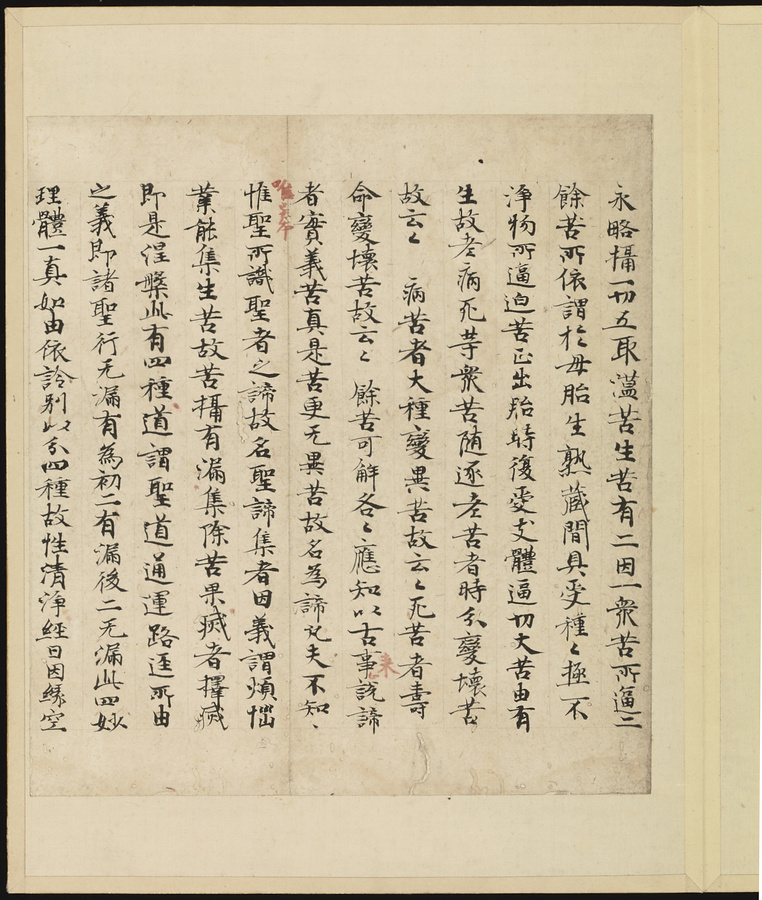 永略攝一切五取蕰苦生苦有二因一衆苦所逼二
餘苦所依謂於母胎生熟藏間具受種〻極不
淨物所逼迫苦正出胎時復受支體逼切大苦由有
生故老病死等衆苦随逐老苦者時分變壞苦
故云〻 病苦者大種變異苦故云〻死苦者壽
命變壞苦故云〻 餘苦可解各〻應知以古事説諦
者實義苦真是苦更无異苦故名為諦凡夫不知、
惟聖所識聖者之諦故名聖諦集者因義謂煩惱
業能集生苦故苦攝有漏集除苦果滅者擇滅
即是涅槃此有四種道謂聖道通運路逕所由
之義即諸聖行无漏有為初二有漏後二无漏此四妙
理體一真如由依詮别以分四種故性清淨經曰因緣空